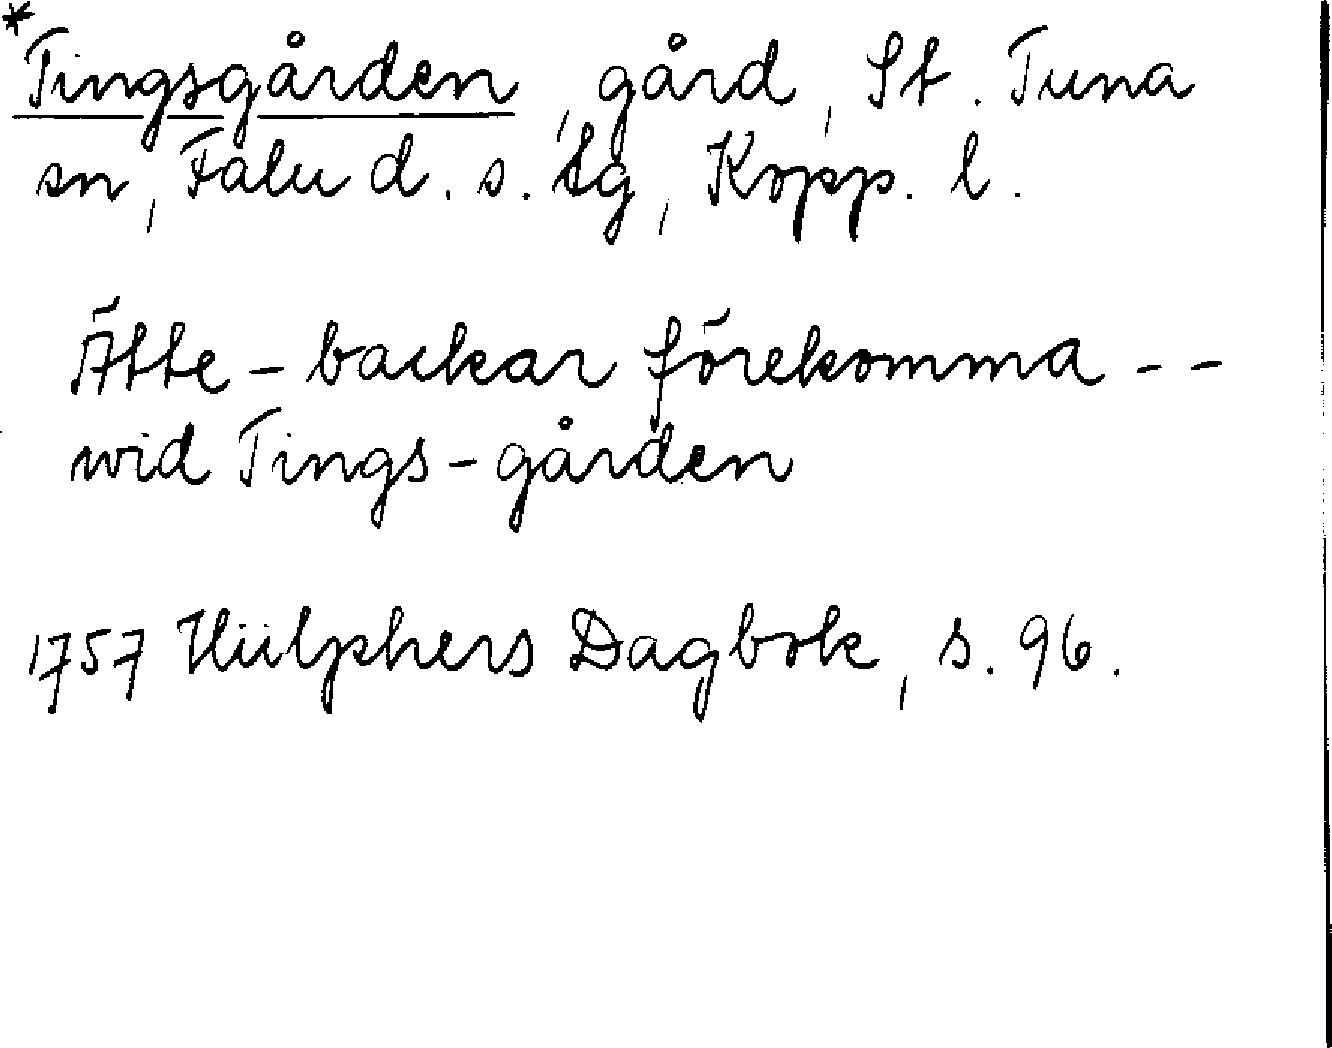 *
Tingsgården, gård, St. Tuna
sn, Falu d. s. tg, Kopp. l.
Ätte-backar förekomma - -
wid Tings-gården
1757 Hülphers Dagbok, s. 96.